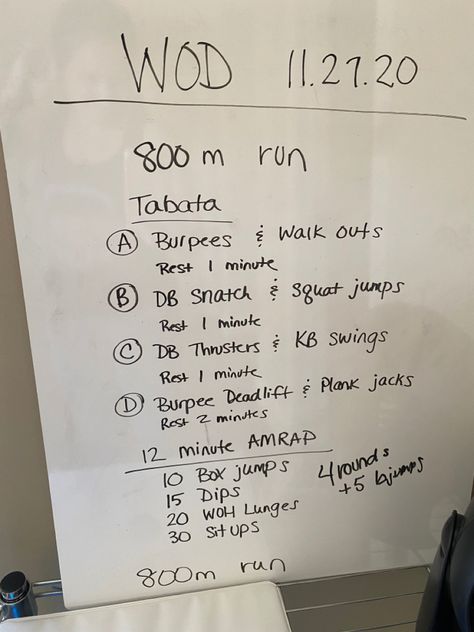 WOD 11.27.20
800 m run
Tabata
A Burpees & Walk outs
Rest 1 minute
B DB Snatch & Squat jumps
Rest 1 minute
C DB Thrusters & KB Swings
Rest 1 minute
D Burpee Deadlift & Plank jacks
Rest 2 minutes
12 minute AMRAP
10 Box jumps
15 Dips
20 WOH Lunges
30 Situps
4 rounds
+5 bjumps
800m run